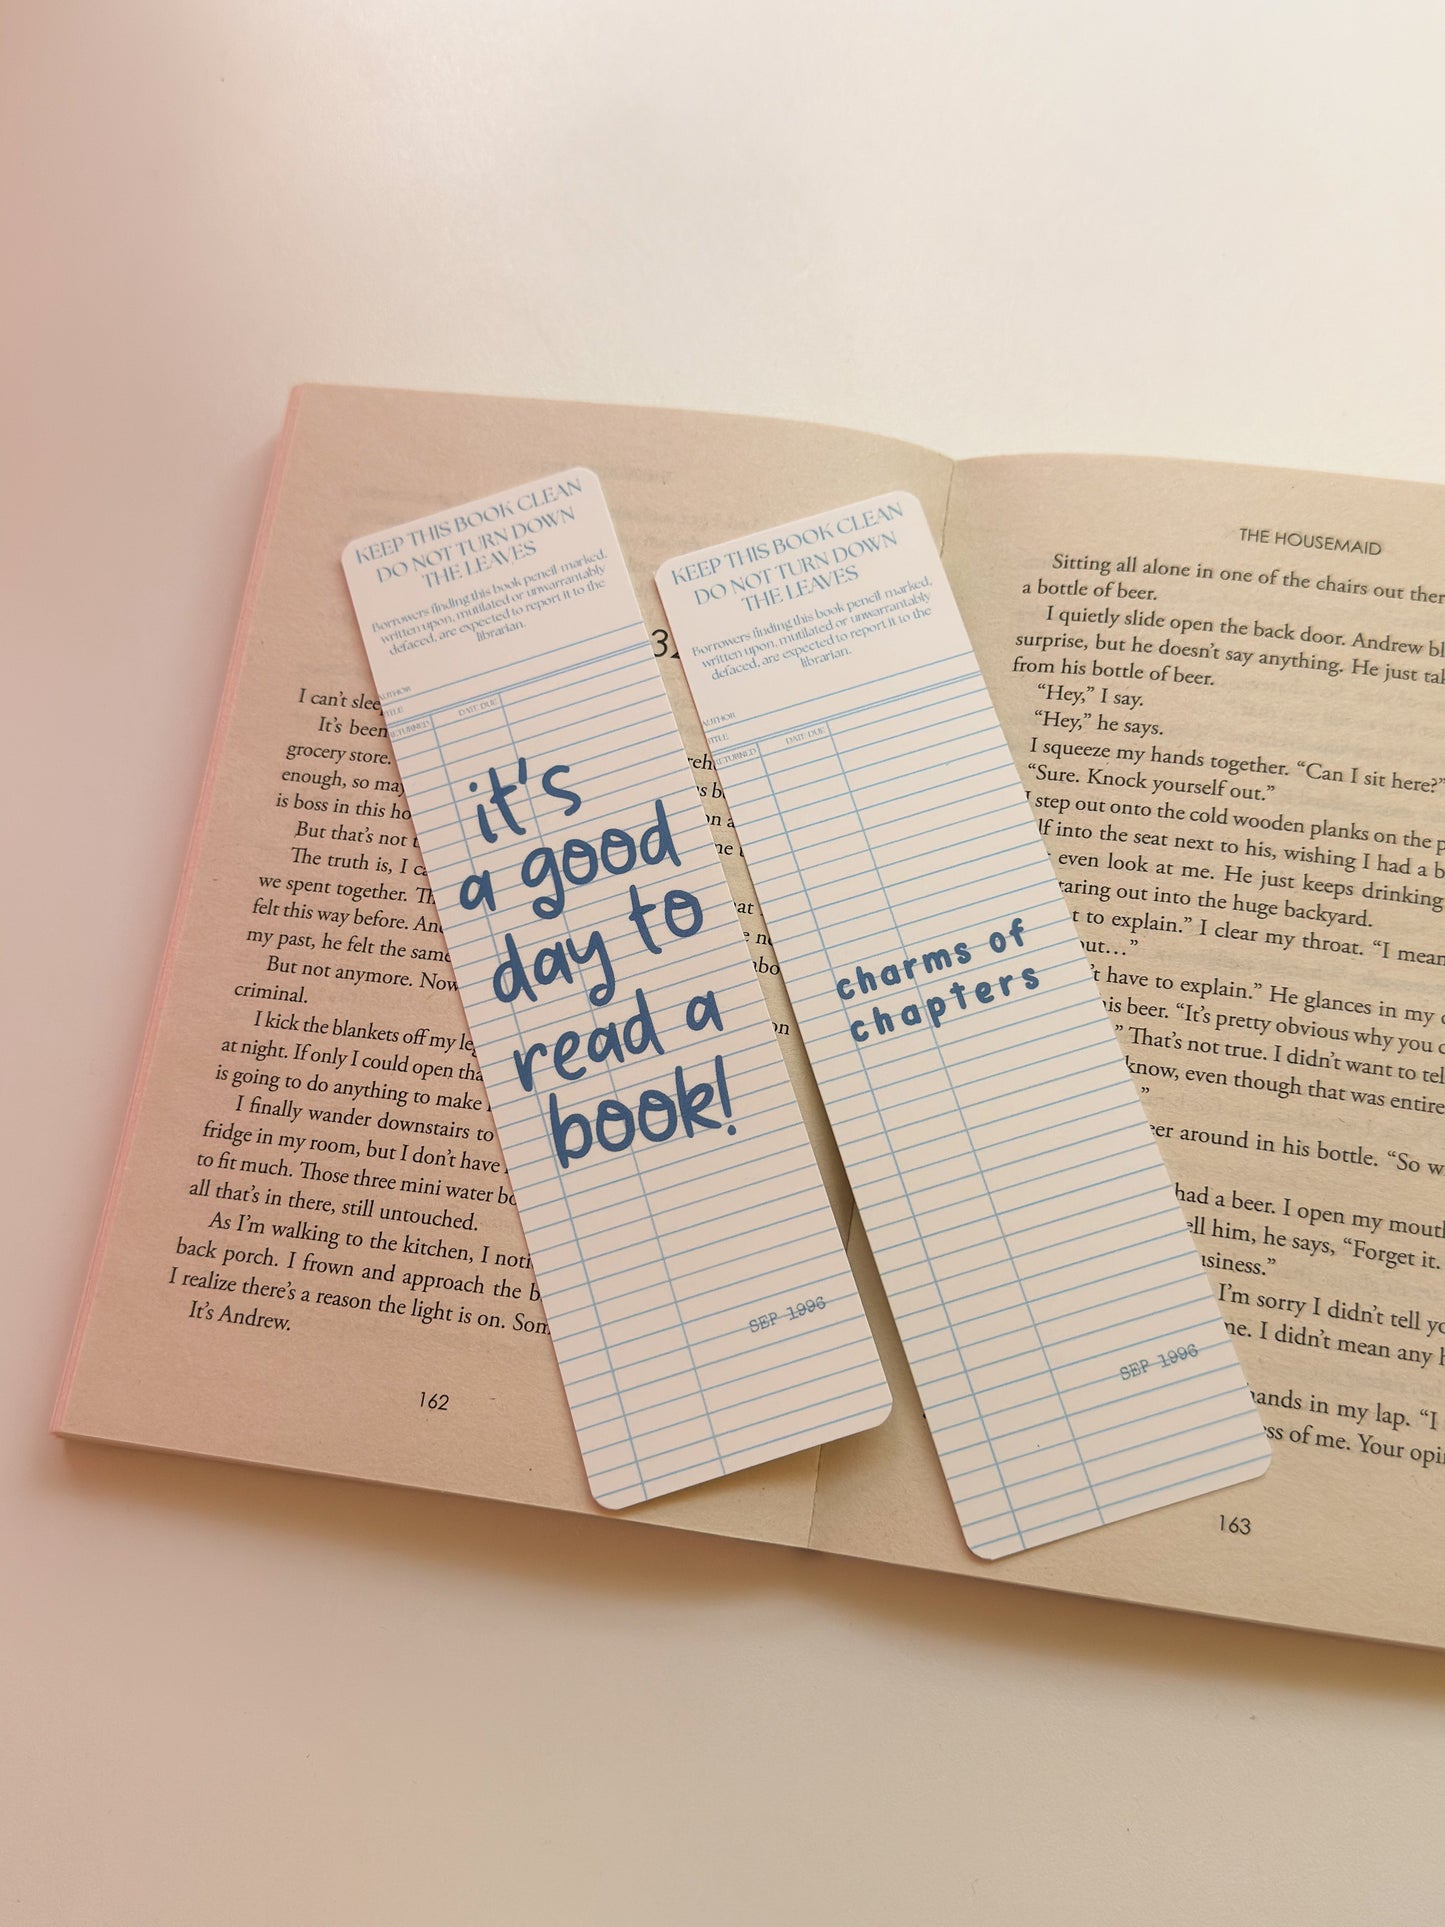 KEEP THIS BOOK CLEAN
DO NOT TURN DOWN
THE LEAVES
Borrowers finding this book pencil marked,
written upon, mutilated or unwarrantably
defaced, are expected to report it to the
librarian.
AUTHOR
TITLE
RETURNED
DATE DUE
it's
a good
day to
read a
book!
SEP 1996
KEEP THIS BOOK CLEAN
DO NOT TURN DOWN
THE LEAVES
Borrowers finding this book pencil marked,
written upon, mutilated or unwarrantably
defaced, are expected to report it to the
librarian.
AUTHOR
TITLE
RETURNED
DATE DUE
charms of
chapters
SEP 1996
I can't slee
It's been
grocery store.
enough, so may
is boss in this ho
But that's not
The truth is, I ca
we spent together. Th
felt this way before. And
my past, he felt the same
But not anymore. Now
criminal.
I kick the blankets off my leg
at night. If only I could open tha
is going to do anything to make
I finally wander downstairs to
fridge in my room, but I don't have
to fit much. Those three mini water bo
all that's in there, still untouched.
As I'm walking to the kitchen, I noti
back porch. I frown and approach the b
I realize there's a reason the light is on. Som
It's Andrew.
162
THE HOUSEMAID
Sitting all alone in one of the chairs out ther
a bottle of beer.
I quietly slide open the back door. Andrew bl
surprise, but he doesn't say anything. He just tak
from his bottle of beer.
“Hey,” I say.
“Hey,” he says.
I squeeze my hands together. “Can I sit here?”
“Sure. Knock yourself out.”
I step out onto the cold wooden planks on the p
lf into the seat next to his, wishing I had a b
even look at me. He just keeps drinking
taring out into the huge backyard.
t to explain.” I clear my throat. “I mean
out…”
't have to explain.” He glances in my
is beer. “It's pretty obvious why you
” That's not true. I didn't want to tel
know, even though that was entire
”
eer around in his bottle. “So w
had a beer. I open my mouth
ell him, he says, “Forget it.
usiness.”
I'm sorry I didn't tell yo
me. I didn't mean any h
hands in my lap. “I
ess of me. Your opin
163